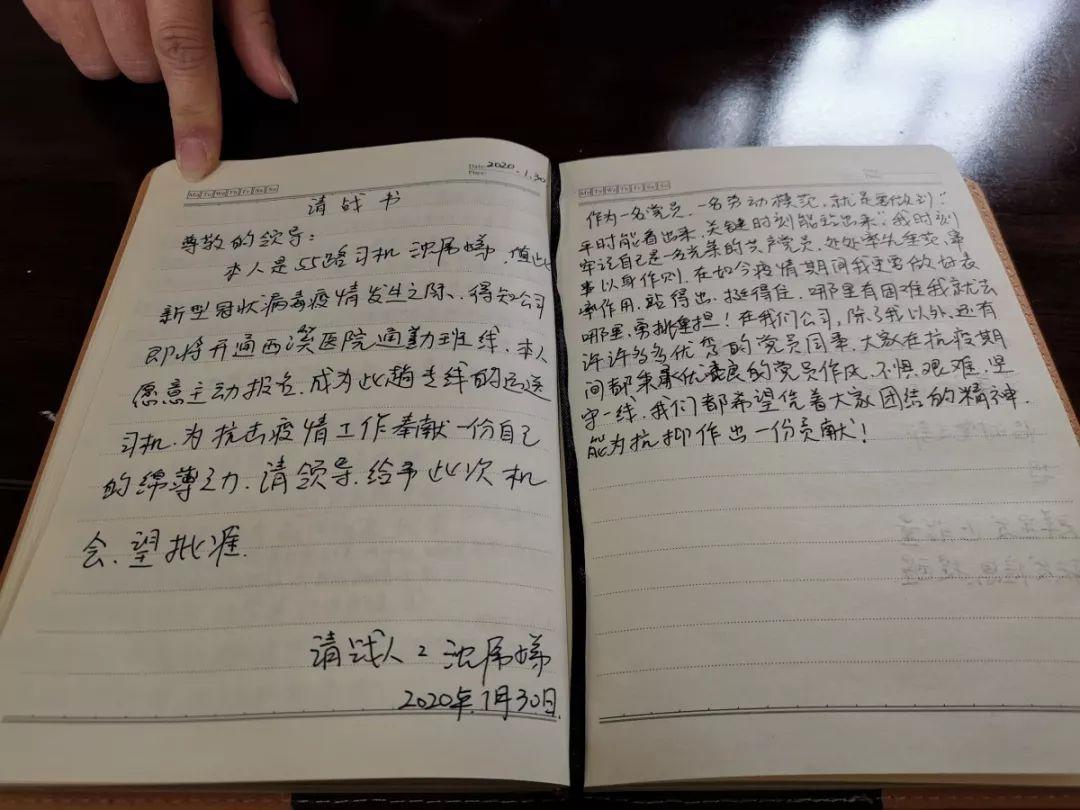 Mo Tu We Th Fr Sa Su
Date: 2020.1.30
Place:
请战书
尊敬的领导:
本人是55路司机沈娣,值此
新型冠状病毒疫情发生之际、得知公司
即将开通西溪医院通勤班线,本人
愿意主动报名,成为此趟专线的运送
司机,为抗击疫情工作奉献一份自己
的绵薄之力,请领导给予此次机
会,望批准.
请战人:沈娣
2020年1月30日.
Mo Tu We Th Fr Sa Su
作为一名党员、一名劳动模范,就是要做到“
平时能看出来,关键时刻能站出来”我时刻
牢记自己是一名光荣的共产党员,处处率先垂范,事
事以身作则,在如今疫情期间我更要做好表
率作用,站得出,挺得住,哪里有困难我就去
哪里,勇挑重担!在我们公司,除了我以外,还有
许许多多优秀的党员同事,大家在抗疫期
间都秉承优良的党员作风,不惧艰难,坚
守一线,我们都希望凭着大家团结的精神,
能为抗抑作出一份贡献!